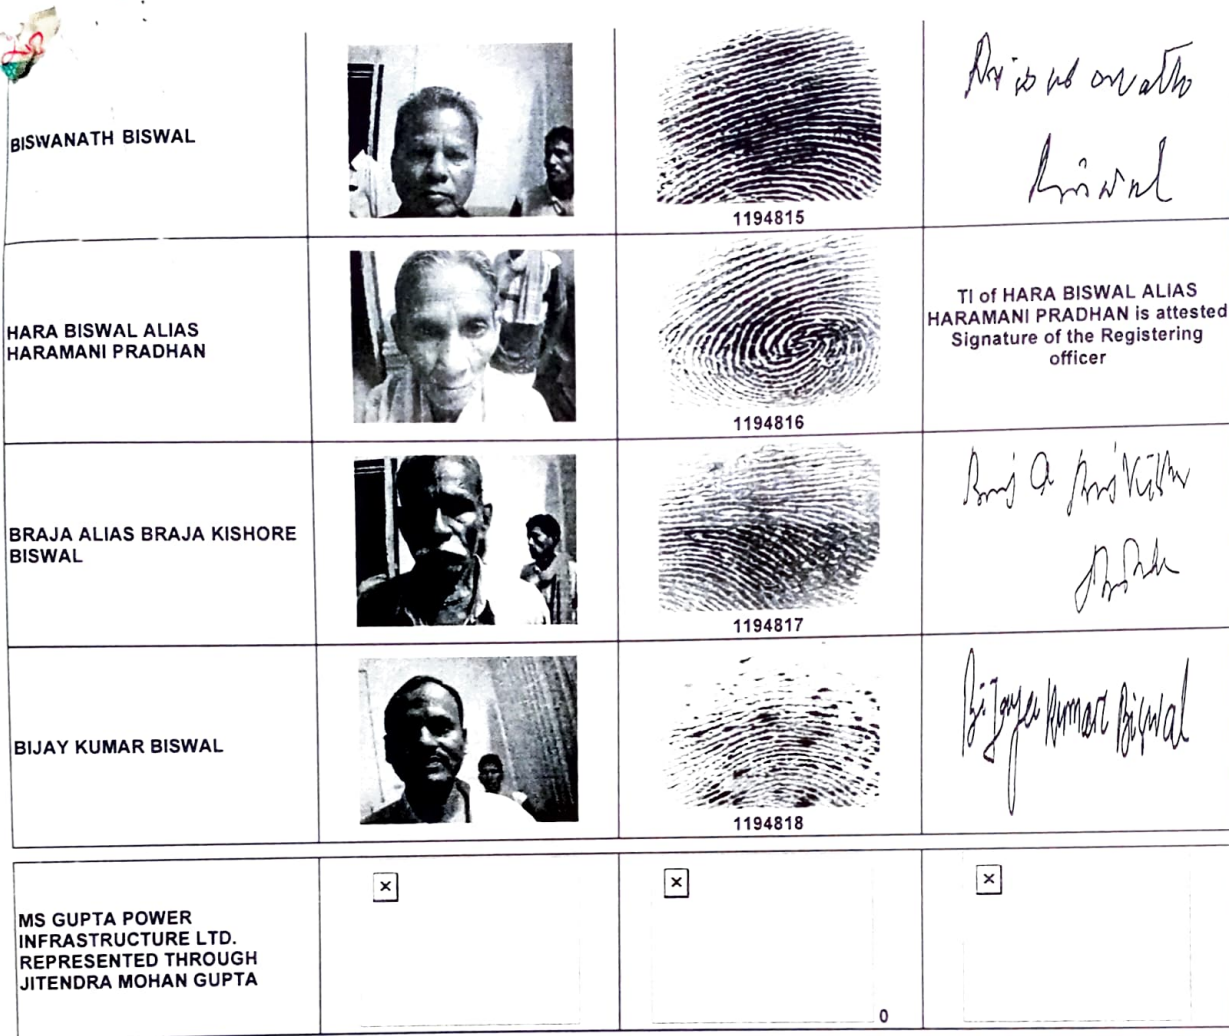 BISWANATH BISWAL
1194815
Biswanath
Biswal
HARA BISWAL ALIAS
HARAMANI PRADHAN
1194816
TI of HARA BISWAL ALIAS
HARAMANI PRADHAN is attested
Signature of the Registering
officer
BRAJA ALIAS BRAJA KISHORE
BISWAL
1194817
BIJAY KUMAR BISWAL
1194818
Bijaya Kumar Biswal
MS GUPTA POWER
INFRASTRUCTURE LTD.
REPRESENTED THROUGH
JITENDRA MOHAN GUPTA
0